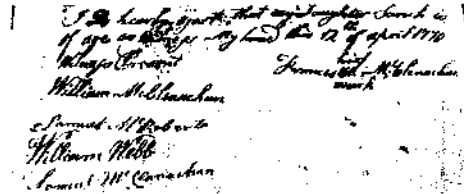 I do hearby certify that my daughter Sarah is
of age as witness my hand this 12th of april 1770
his
Francis M. McClenachan
mark
William McClenachan
Samuel McRoberts
William Webb
Samuel McClanachan